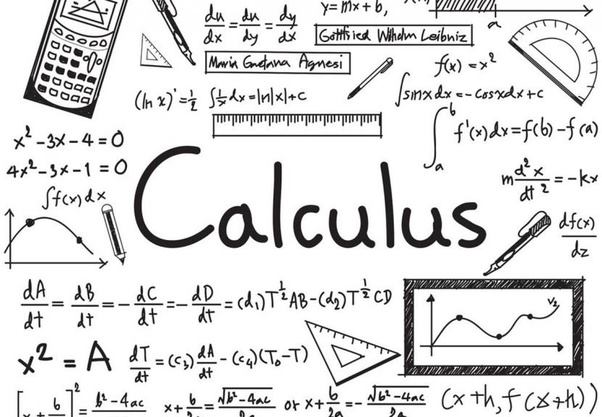 y=mx+b,
du/dx = du/dy = dy/dx
Gottfried Wilhelm Leibniz
a
Maria Gaetana Agnesi
f(x) = x²
(ln x)' = 1/2 ∫1/x dx = ln|x|+c
∫sinx dx = -cosxdx+c
x² -3x-4=0
∫_a^b f'(x)dx = f(b) - f(a)
4x² -3x-1=0
m d²x/dt² = -kx
∫f(x)dx
Calculus
df(x)/dz
dA/dt = dB/dt = -dC/dt = -dD/dt = (d₁)T^½ AB-(d₂)T^½ CD
V₂
x² = A
dT/dt = (c₃) dA/dt - (c₄)(T₀-T)
[x + b/]² = b²-4ac
x+b/2a = √b²-4ac or x+b/2a = -√b²-4ac/2a
(x+h, f(x+h))